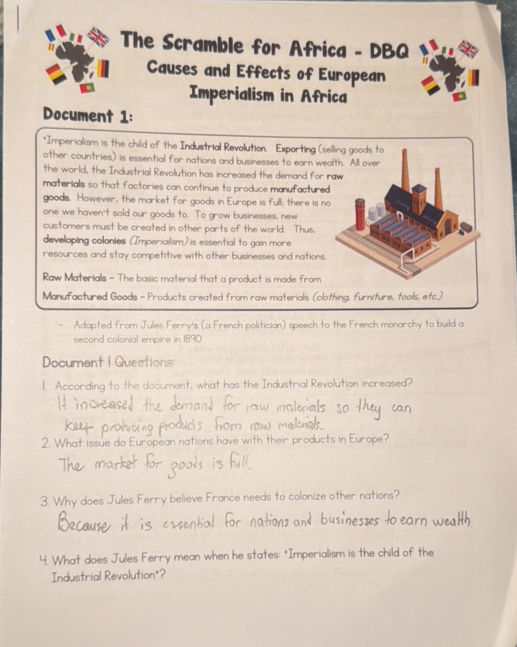 The Scramble for Africa - DBQ
Causes and Effects of European
Imperialism in Africa
Document 1:
"Imperialism is the child of the Industrial Revolution. Exporting (selling goods to
other countries) is essential for nations and businesses to earn wealth. All over
the world, the Industrial Revolution has increased the demand for raw
materials so that factories can continue to produce manufactured
goods. However, the market for goods in Europe is full; there is no
one we haven't sold our goods to. To grow businesses, new
customers must be created in other parts of the world. Thus,
developing colonies (Imperialism) is essential to gain more
resources and stay competitive with other businesses and nations.
Raw Materials - The basic material that a product is made from
Manufactured Goods - Products created from raw materials (clothing, furniture, tools, etc.)
- Adapted from Jules Ferry's (a French politician) speech to the French monarchy to build a
second colonial empire in 1890
Document 1 Questions:
1. According to the document, what has the Industrial Revolution increased?
It increased the demand for raw materials so they can
keep producing products from raw materials.
2. What issue do European nations have with their products in Europe?
The market for goods is full.
3. Why does Jules Ferry believe France needs to colonize other nations?
Because it is essential for nations and businesses to earn wealth
4. What does Jules Ferry mean when he states: "Imperialism is the child of the
Industrial Revolution"?